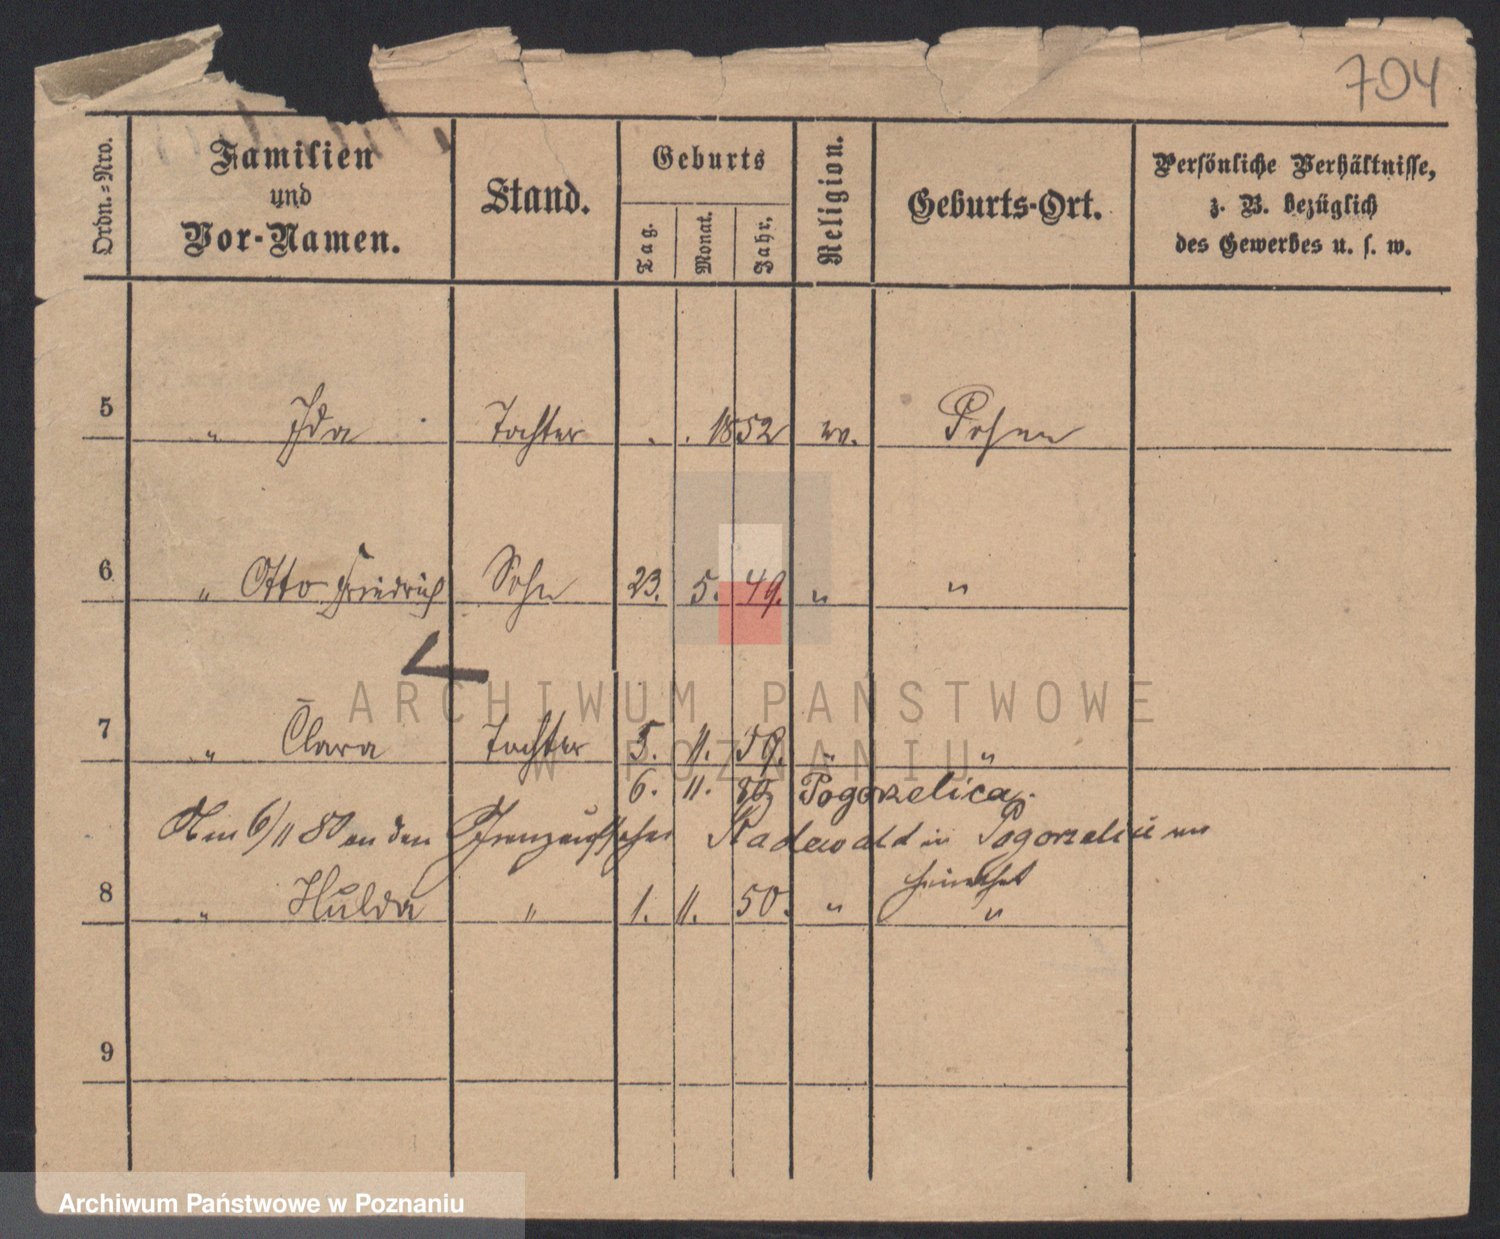 704
Ordn.-Nro.
Familien
und
Vor-Namen.
Stand.
Geburts
Tag.
Monat.
Jahr.
Religion.
Geburts-Ort.
Persönliche Verhältnisse,
z. B. bezüglich
des Gewerbes u. s. w.
5 „ Ida Tochter . . 1852 ev. Posen
6 „ Otto Friedrich Sohn 23. 5. 49. „ „
7 „ Clara Tochter 5. 11. 59. „ „
6. 11. 80 Pogorzelica.
Am 6/11 80 an den Grenzaufseher Radewald in Pogorzelice
8 „ Hulda „ 1. 11. 50. „ „
9
ARCHIWUM PAŃSTWOWE
W POZNANIU
Archiwum Państwowe w Poznaniu